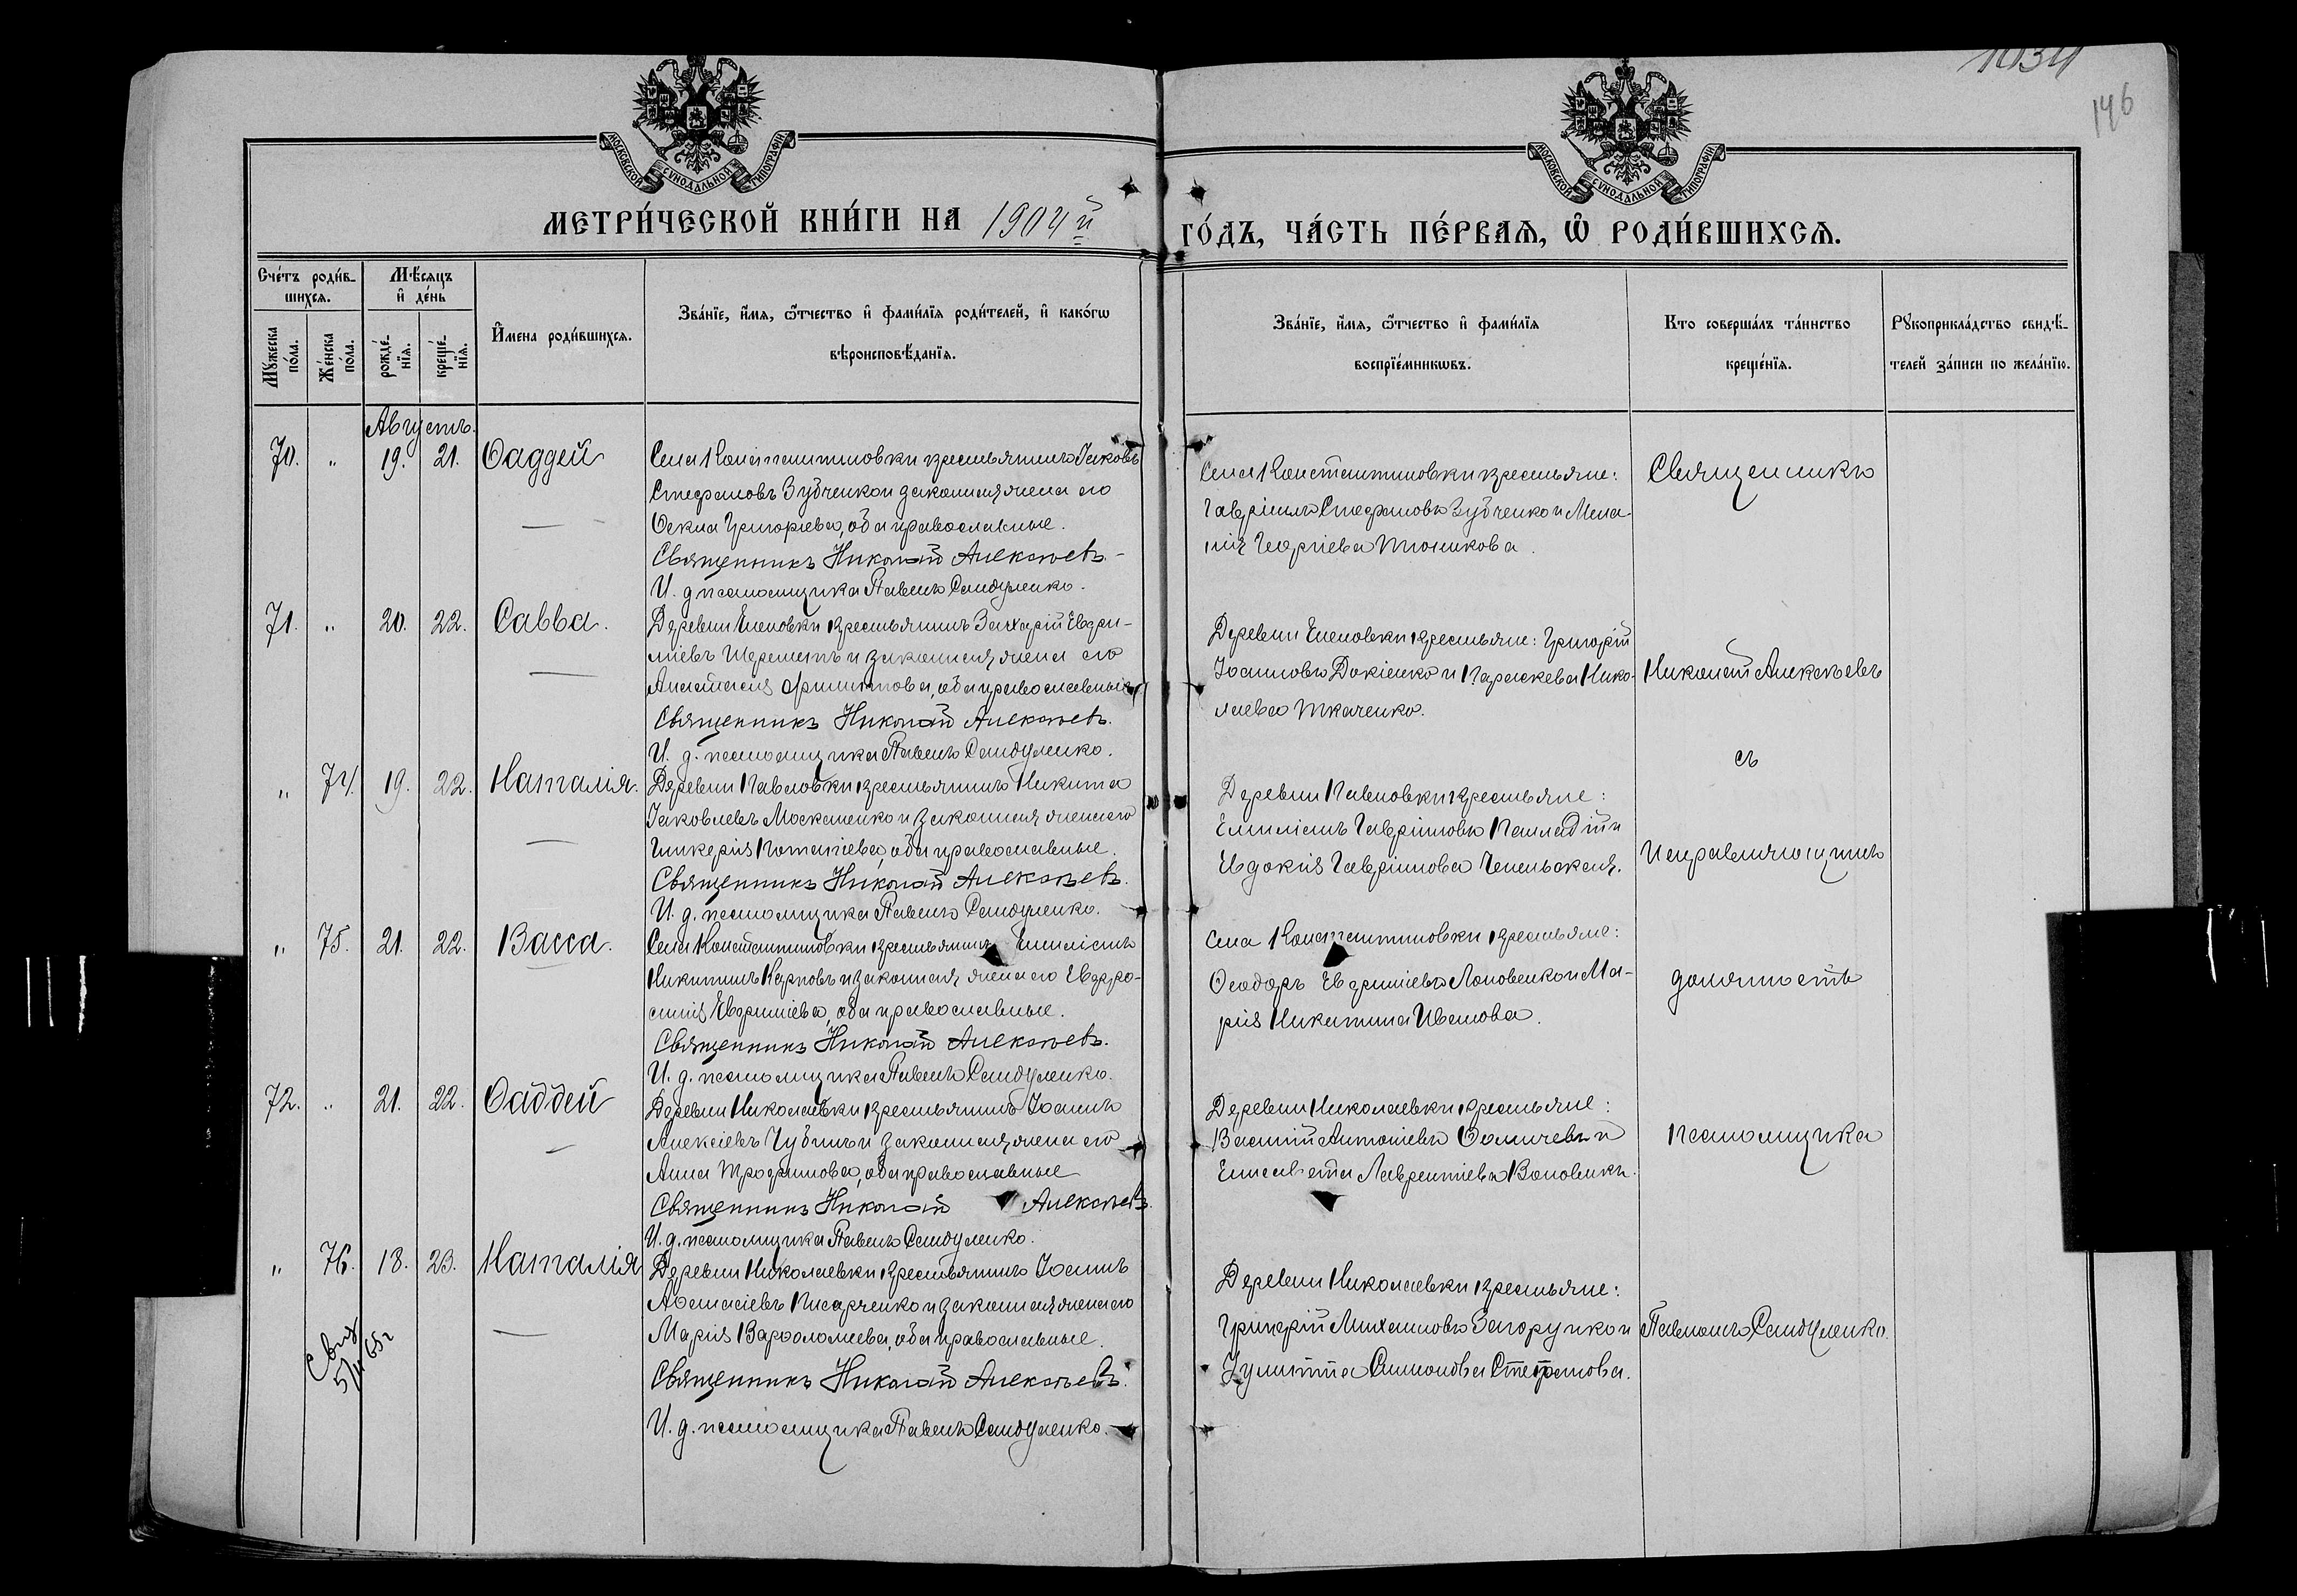 1034
146
МОСКОВСКОЙ СѴНОДАЛЬНОЙ ТИПОГРАФІИ
МОСКОВСКОЙ СѴНОДАЛЬНОЙ ТИПОГРАФІИ
МЕТРИ́ЧЕСКОЙ КНИ́ГИ НА 1904й
ГО́ДЪ, ЧА́СТЬ ПЕ́РВАѦ, Ѡ҆ РОДИ́ВШИХСѦ.
Сче́тъ роди́в-
шихсѧ.
Мѣ́сяцъ
и҆ де́нь
Мꙋ́жеска по́ла.
Же́нска по́ла.
рожде́-нїѧ.
креще́-нїѧ.
И҆мена роди́вшихсѧ.
Зва́нїе, и҆́мѧ, ѻ҆́тчество и҆ фами́лїѧ роди́телей, и҆ како́гѡ
вѣроисповѣ́данїѧ.
Зва́нїе, и҆́мѧ, ѻ҆́тчество и҆ фами́лїѧ
воспрїе́мникѡвъ.
Кто соверша́лъ та́инство
креще́нїѧ.
Рꙋкоприкла́дство свидѣ́-
телей за́писи по жела́нїю.
Августъ.
70. " 19. 21. Ѳаддей
Села Константиновки крестьянинъ Іаковъ
Стефановъ Зубченко и законная жена его
Ѳекла Григоріева, оба православные.
Священникъ Николай Алексѣевъ
И. д. псаломщика Павелъ Сандуленко.
Села Константиновки крестьяне:
Гавріилъ Стефановъ Зубченко и Мела-
нія Георгіева
Священникъ
71. " 20. 22. Савва.
Деревни Еленовки крестьянинъ Захарій Евфи-
міевъ Шереметъ и законная жена его
Анастасія Филиппова, оба православные
Священникъ Николай Алексѣевъ.
И. д. псаломщика Павелъ Сандуленко.
Деревни Еленовки крестьяне: Григорій
Іоанновъ и Параскева Нико-
лаева Ткаченко.
Николай Алексѣевъ
съ
" 74. 19. 22. Наталія.
Деревни Павловки крестьянинъ Никита
Іаковлевъ Москаленко и законная жена его
Гликерія Потапіева, оба православные.
Священникъ Николай Алексѣевъ.
И. д. псаломщика Павелъ Сандуленко.
Деревни Павловки крестьяне:
Емиліанъ Гавріиловъ Палладій и
Евдокія Гавріилова
Исправляющимъ
" 75. 21. 22. Васса.
Села Константиновки крестьянинъ Емиліанъ
Никитинъ Карповъ и законная жена его Евфро-
синія Евфиміева, оба православные.
Священникъ Николай Алексѣевъ.
И. д. псаломщика Павелъ Сандуленко.
Села Константиновки крестьяне:
Ѳеодоръ Евфиміевъ и Ма-
рія Никитина Иванова.
должность
72. " 21. 22. Ѳаддей
Деревни Николаевки крестьянинъ Іоаннъ
Алексіевъ Чубинъ и законная жена его
Анна Трофимова, оба православные
Священникъ Николай Алексѣевъ
И. д. псаломщика Павелъ Сандуленко.
Деревни Николаевки крестьяне:
Василій Антоніевъ Ѳомичевъ и
Елисавета Лаврентіева
псаломщика
" 76. 18. 23. Наталія
Деревни Николаевки крестьянинъ Іоаннъ
Аѳанасіевъ Писарченко и законная жена его
Марія Варѳоломеева, оба православные.
Священникъ Николай Алексѣевъ.
И. д. псаломщика Павелъ Сандуленко.
Деревни Николаевки крестьяне:
Григорій Михаиловъ Загорулко и
Іулитта Симонова Стефанова.
Павломъ Сандуленко.